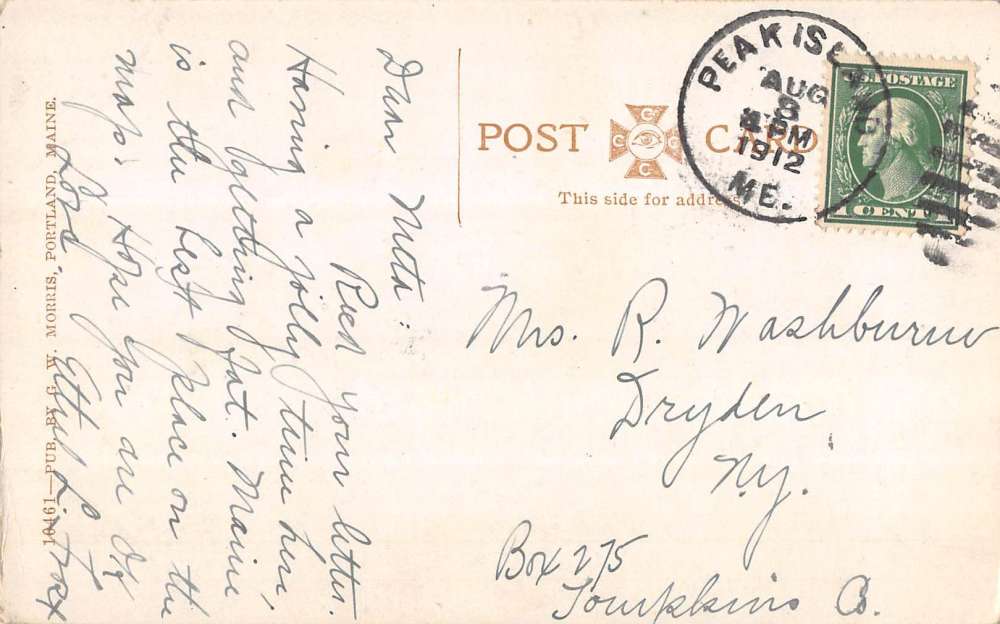 Dear Meta:
Recd your letter.
Having a jolly time here
and getting fat. Maine
is the best place on the
map. Hope you are OK
Love. Ethel L.
10461—PUB. BY G. W. MORRIS, PORTLAND, MAINE.
POST CARD
This side for address
PEAK ISLAND
AUG
8
PM
1912
ME.
U.S. POSTAGE
1 CENT 1
Mrs. R. Washburn
Dryden
N.Y.
Box 275
Tompkins Co.